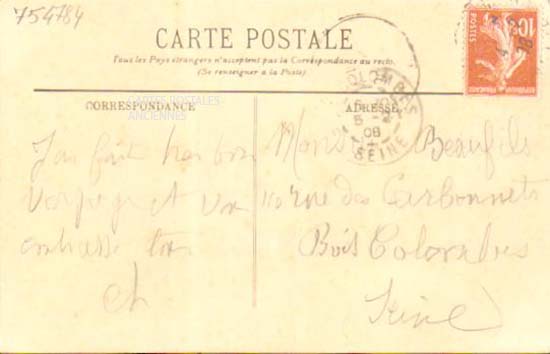 754784
CARTE POSTALE
Tous les Pays étrangers n'acceptent pas la Correspondance au recto.
(Se renseigner à la Poste)
CORRESPONDANCE
CARTES POSTALES
ANCIENNES
J'ai fait très bon
voyage et vous
embrasse tous
ch
ADRESSE
Beaufils
rue des Carbonnets
Bois Colombes
Seine
COLOMBES
08
SEINE
10c
POSTES
REPUBLIQUE FRANÇAISE